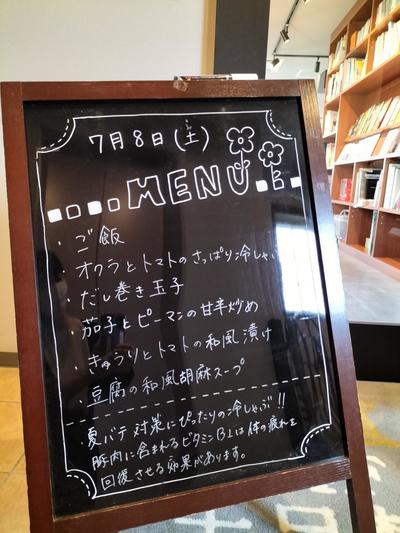 7月8日(土)
MENU
・ご飯
・オクラとトマトのさっぱり冷しゃぶ
・だし巻き玉子
・茄子とピーマンの甘辛炒め
・きゅうりとトマトの和風漬け
・豆腐の和風胡麻スープ
・夏バテ対策にぴったりの冷しゃぶ!!
豚肉に含まれるビタミンB1は体の疲れを
回復させる効果があります。